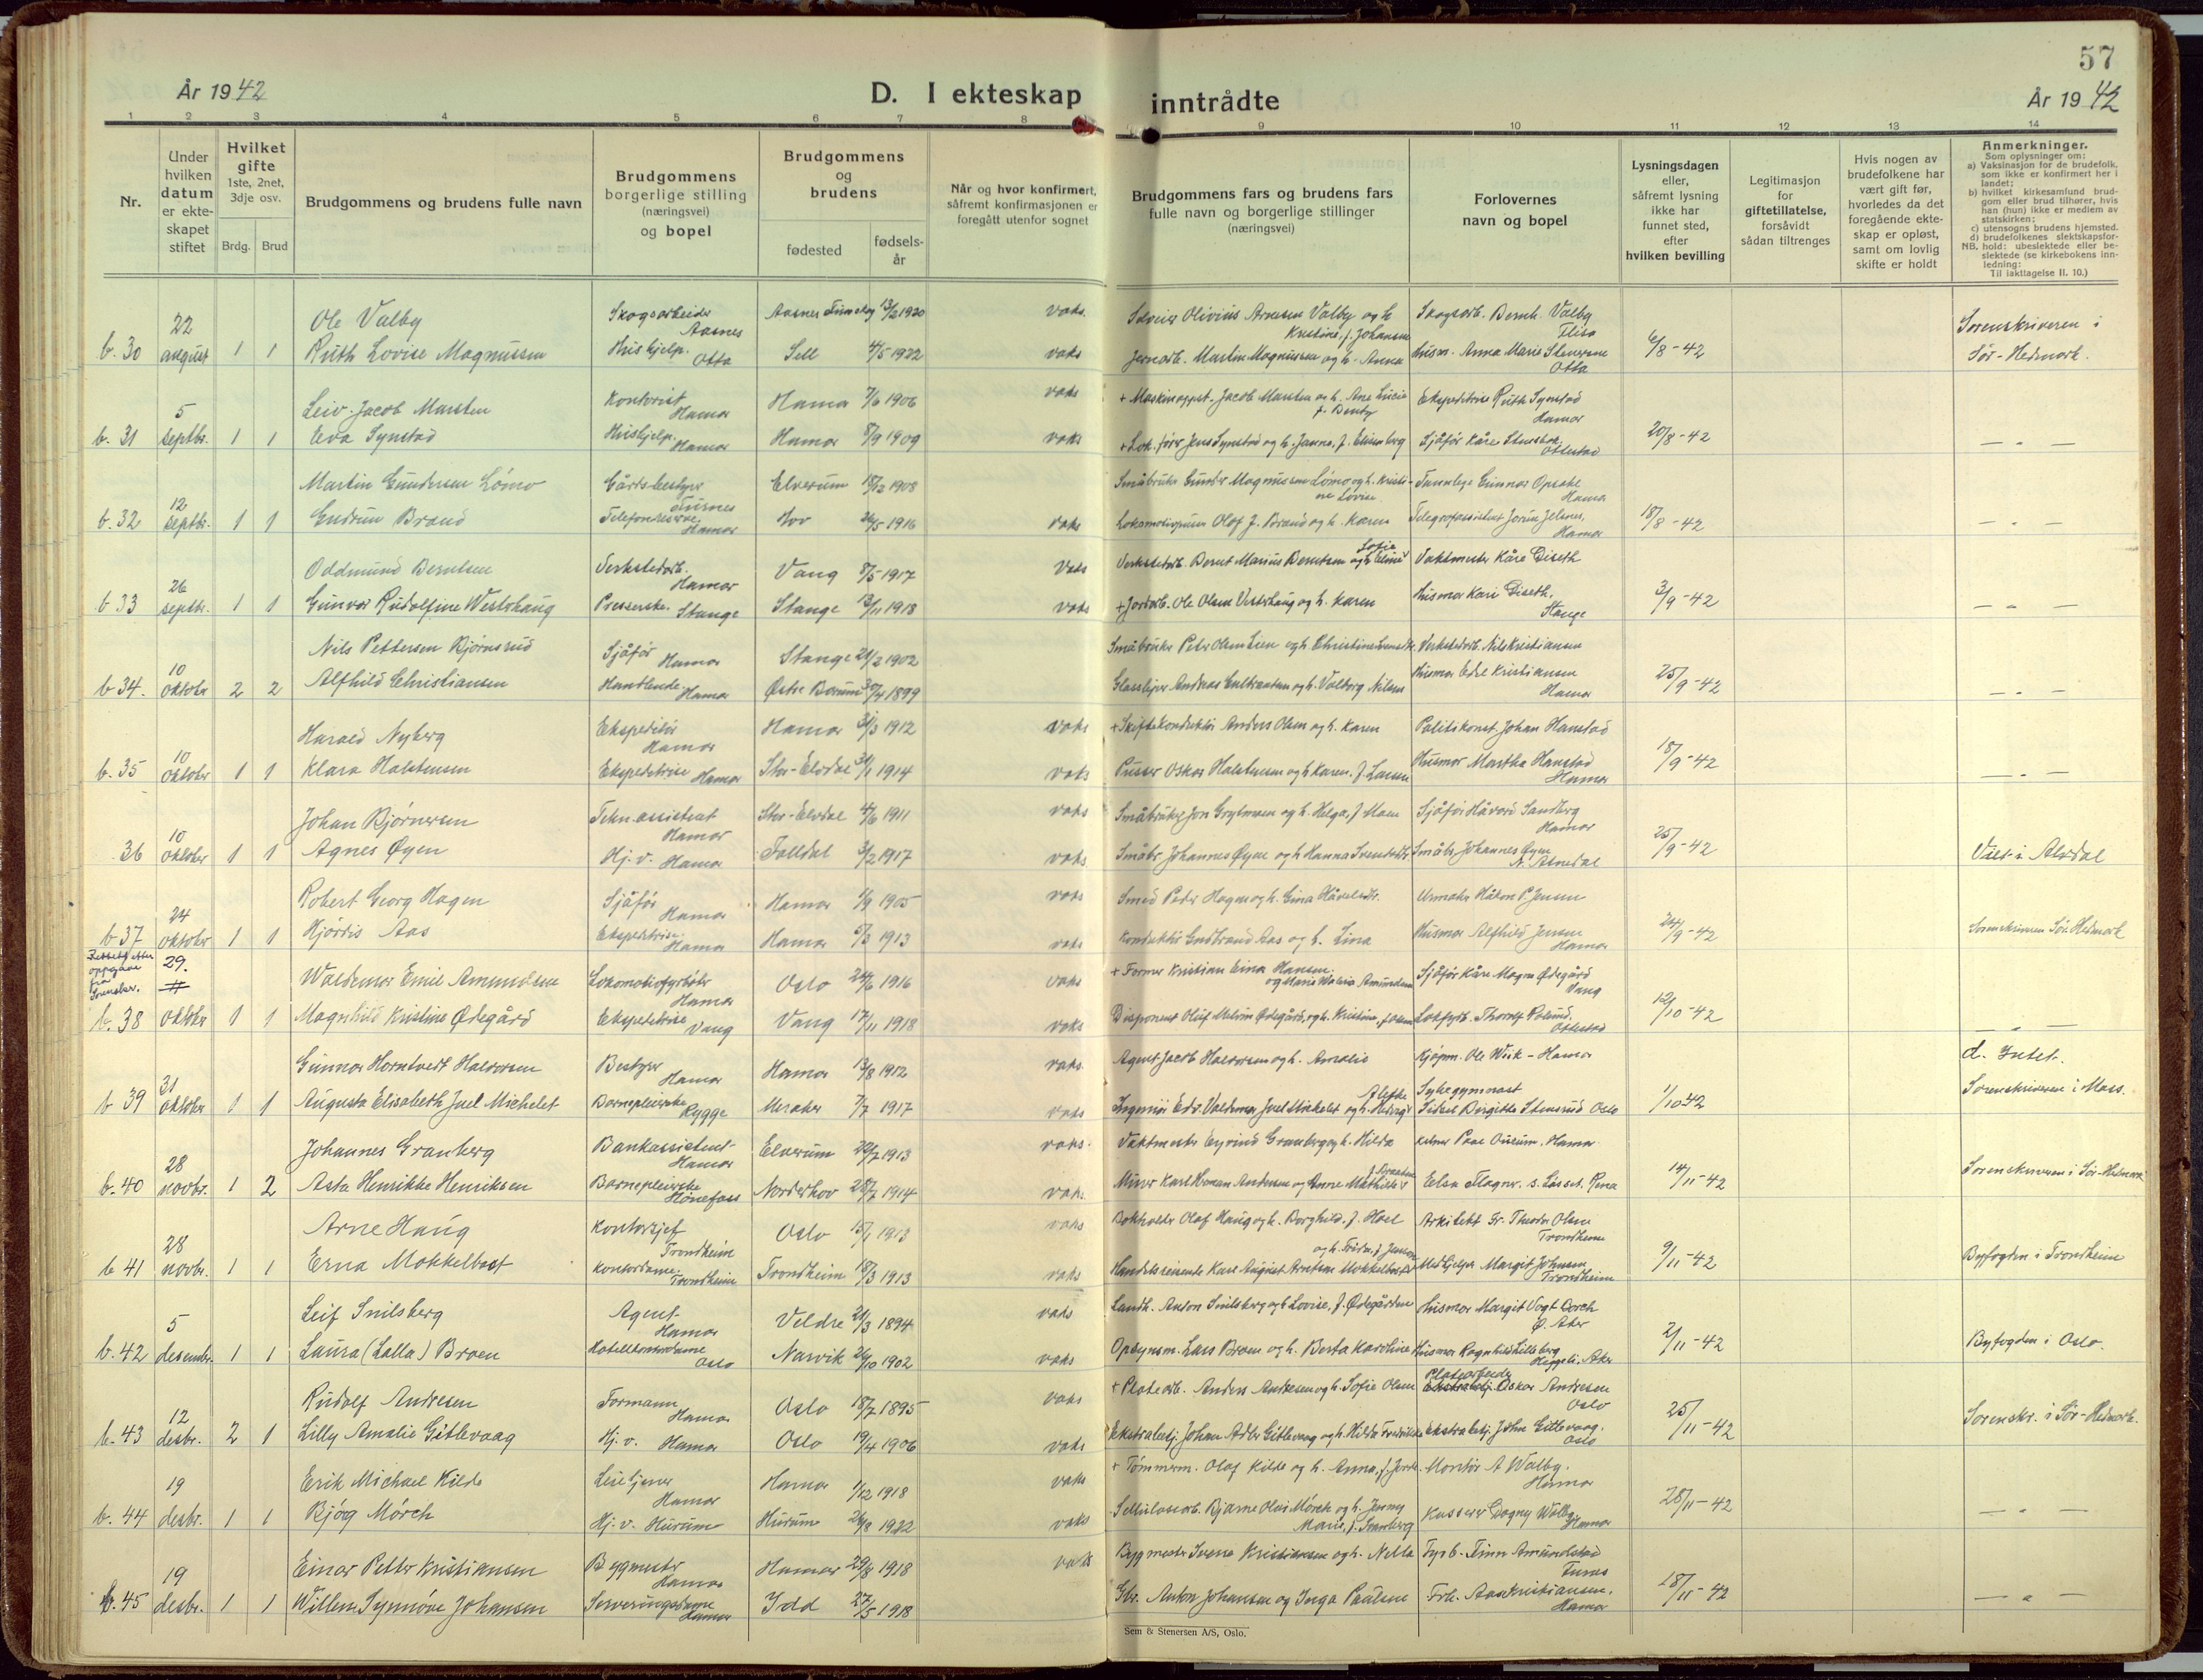 57
År 1942
D. I ekteskap inntrådte
År 1942
1 2 3 4 5 6 7 8 9 10 11 12 13 14
Nr.
Under hvilken datum er ekteskapet stiftet
Hvilket gifte 1ste, 2net, 3dje osv.
Brdg. Brud
Brudgommens og brudens fulle navn
Brudgommens borgerlige stilling (næringsvei) og bopel
Brudgommens og brudens
fødested
fødselsår
Når og hvor konfirmert, såfremt konfirmasjonen er foregått utenfor sognet
Brudgommens fars og brudens fars fulle navn og borgerlige stillinger (næringsvei)
Forlovernes navn og bopel
Lysningsdagen eller, såfremt lysning ikke har funnet sted, efter hvilken bevilling
Legitimasjon for giftetillatelse, forsåvidt sådan tiltrenges
Hvis nogen av brudefolkene har vært gift før, hvorledes da det foregående ekteskap er opløst, samt om lovlig skifte er holdt
Anmerkninger.
Som oplysninger om:
a) Vaksinasjon for de brudefolk, som ikke er konfirmert her i landet;
b) hvilket kirkesamfund brudgom eller brud tilhører, hvis han (hun) ikke er medlem av statskirken;
c) utensogns brudens hjemsted.
d) brudefolkenes slektskapsforhold: ubeslektede eller beslektede (se kirkebokens innledning:
NB. Til iakttagelse II. 10.)
Ole Valby Skogsarbeider Aasnes Aasnes Finnskog 13/2 1920 vaks. Olivius Arnesen Valby og h. Kristine, f. Johansen Skogsarb. Bernh. Valby Flisa
b. 30 22 august 1 1 Ruth Lovise Magnussen Hushjelp. Otta Sell 4/5 1922 vaks Jernarb. Martin Magnussen og h. Anna Husm. Anna Marie Otta 6/8-42 Sorenskriveren i Sør-Hedmark.
Leiv Jacob Marsten Kontorist Hamar Hamar 7/6 1906 vaks + Maskinoppst. Jacob Marsten og h. Ane Lucie Ekspeditrise Ruth Synstad Hamar
b. 31 5 septbr. 1 1 Eva Synstad Hushjelp. Hamar Hamar 8/9 1909 vaks + Lok.fører Jens Synstad og h. Janna, f. Sjåfør Kåre Ottestad 20/8-42 — " —
Martin Gundersen Lømo Gårdsbestyrer Furnes Elverum 18/2 1908 Småbruker Gunder Magnussen Lømo og h. Kristine Lovise Tannlege Gunnar Opsahl Hamar
b. 32 12 septbr. 1 1 Gudrun Brand Hamar Hov 1916 vaks Olaf J. Brand og h. Karen Telegrafassistent Hamar 18/8-42 — " —
Oddmund Berntsen Verkstedarb. Hamar Vang 8/5 1917 vaks Verkstedarb. Bernt Marius Berntsen og h. Sofie Vaktmester Kåre Diseth
b 33 26 septbr. 1 1 Gunvor Rudolfine Westrhaug Stange Stange 13/11 1918 vaks + Jordarb. Ole Olsen Vestrhaug og h. Karen Husmor Kari Diseth, Stange 3/9-42 — " —
Nils Pettersen Bjørnsrud Sjåfør Hamar Stange 21/2 1902 Småbruker Peter Olsen Lien og h. Christine Verkstedarb. Nils Kristiansen
b 34. 10 oktober 2 2 Alfhild Christiansen Hamar Østre 1899 Andreas og h. Valborg Nilsen Husmor Edel Kristiansen Hamar 25/9-42 — " —
Harald Nyberg Ekspeditør Hamar Hamar 3/3 1912 vaks + Skiftekonduktør Anders Olsen og h. Karen Politikonst. Johan Hanstad
b. 35 10 oktober 1 1 Klara Halstensen Ekspeditrise Hamar Stor-Elvdal 1914 vaks Pusser Oskar Halstensen og h. Karen, f. Larsen Husmor Martha Hanstad Hamar 18/9-42 — " —
Johan Bjørnersen Tekn. assistent Hamar Stor-Elvdal 4/6 1911 vaks Småbruker Jon og h. Helga, f. Moen Sjåfør Håvard Sandberg Hamar
36 10 oktober 1 1 Agnes Øyen Hj. v. Hamar Folldal 3/2 1917 vaks Småbr. Johannes Øyen og h. Hanna Småbr. Johannes Øyen 25/9-42 Viet i Alvdal
Robert Georg Hagen Sjåfør Hamar Hamar 1/9 1905 vaks Smed Peder Hagen og h. Gina Urmaker Håkon P. Jensen
b 37 24 oktober 1 1 Hjørdis Aas Ekspeditrise. Hamar Hamar 5/3 1913 vaks Konduktør Gudbrand Aas og h. Lina Husmor Alfhild Jensen Hamar 24/9-42 Sorenskriveren Sør-Hedmark
Rettet etter oppgave fra Sorenskr. 29. Waldemar Emil Amundsen Lokomotivfyrbøter Hamar Oslo 24/6 1916 vaks + Former Kristian Einar Hansen og Marie Amundsen Sjåfør Kåre Magne Ødegård Vang
b. 38 oktober 1 1 Magnhild Kristine Ødegård Ekspeditrise Vang Vang 17/11 1918 vaks Disponent Oluf Ødegård, og h. Kristine, f. Olsen Lokfyrb. Thoralf Ottestad 12/10-42 — " —
Gunnar Horntvedt Halvorsen Bestyrer Hamar Hamar 13/8 1912 vaks. Agent Jacob Halvorsen og h. Amalie Kjøpm. Ole Wiik - Hamar d. Intet.
b 39 31 oktober 1 1 Augusta Elisabeth Juel Michelet Barnepleierske Rygge Meraker 7/7 1917 vaks Ingeniør Edv. Valdemar Juel Michelet og h. Hedvig Sykegymnast Birgitte Stensrud Oslo 1/10 42 Sorenskriveren i Moss.
Johannes Granberg Bankassistent Hamar Elverum 1913 vaks. Vaktmester Eyvind Granberg og h. Hilda Hamar
b. 40 28 novbr. 1 2 Asta Henrikke Henriksen Barnepleierske Hønefoss Norderhov 28/7 1914 vaks. Miner Karl Herman Andersen og Anne Mathilde Elsa Rena 14/11-42 Sorenskriveren i Sør-Hedmark
Arne Haug Kontorsjef Trondheim Oslo 15/1 1913 vaks Bokholder Olaf Haug og h. Borghild, f. Hoel Arkitekt Fr. Theodor Olsen Trondheim
b 41 28 novbr. 1 1 Erna Mokkelbost Kontordame. Trondheim Trondheim 18/3 1913 vaks Handelsreisende Karl August Arntsen Mokkelbost og h. Frida, f. Jenson Margit Johnsen Trondheim 9/11-42 Byfogden i Trondheim
Leif Snilsberg Agent Hamar Veldre 21/3 1894 vaks Landh. Anton Snilsberg og h. Lovise, f. Ødegården Husmor Margit Vogt Dorch Ø. Aker
b. 42 5 desembr. 1 1 Laura (Lalla) Broen Oslo Narvik 26/10 1902 vaks Opsynsm. Lars Broen og h. Berta Karoline Husmor Ragnhild Aker 2/11-42 Byfogden i Oslo.
Rudolf Andresen Formann Hamar Oslo 18/7 1895 vaks + Platearb. Anders Andresen og h. Sofie Olsen Platearbeider Oskar Andresen Oslo
b. 43 12 desbr. 2 1 Lilly Amalie Gitlevaag Hj. v. Hamar Oslo 19/4 1906 vaks Ekstrabetj. Johan Gitlevaag og h. Hilda Fredrikke Ekstrabetj. John Gitlevaag. Oslo 25/11-42 Sorenskr. i Sør-Hedmark.
Erik Michael Kilde Hamar Hamar 1/12 1918 vaks + Tømmerm. Olaf Kilde og h. Anna, Montør A Walby. Hamar
b. 44 19 desbr. 1 1 Bjørg Mørch Hj. v. Hurum Hurum 26/8 1922 vaks Cellulosearb. Bjarne Olai Mørch og h. Jenny Marie, f. Granberg Dagny Walby Hamar 28/11-42 — " —
Einar Petter Kristiansen Byggmester Hamar Hamar 29/8 1918 vaks Byggmester Kristiansen og h. Nella Finn Amundstad Furnes
b. 45 19 desbr. 1 1 Willem Synnöve Johansen Serveringsdame Hamar Idd 27/5 1918 Gbr. Anton Johansen og Inga Paulsen Frk. Kristiansen. Hamar 18/11-42 — " —
Sem & Stenersen A/S, Oslo.